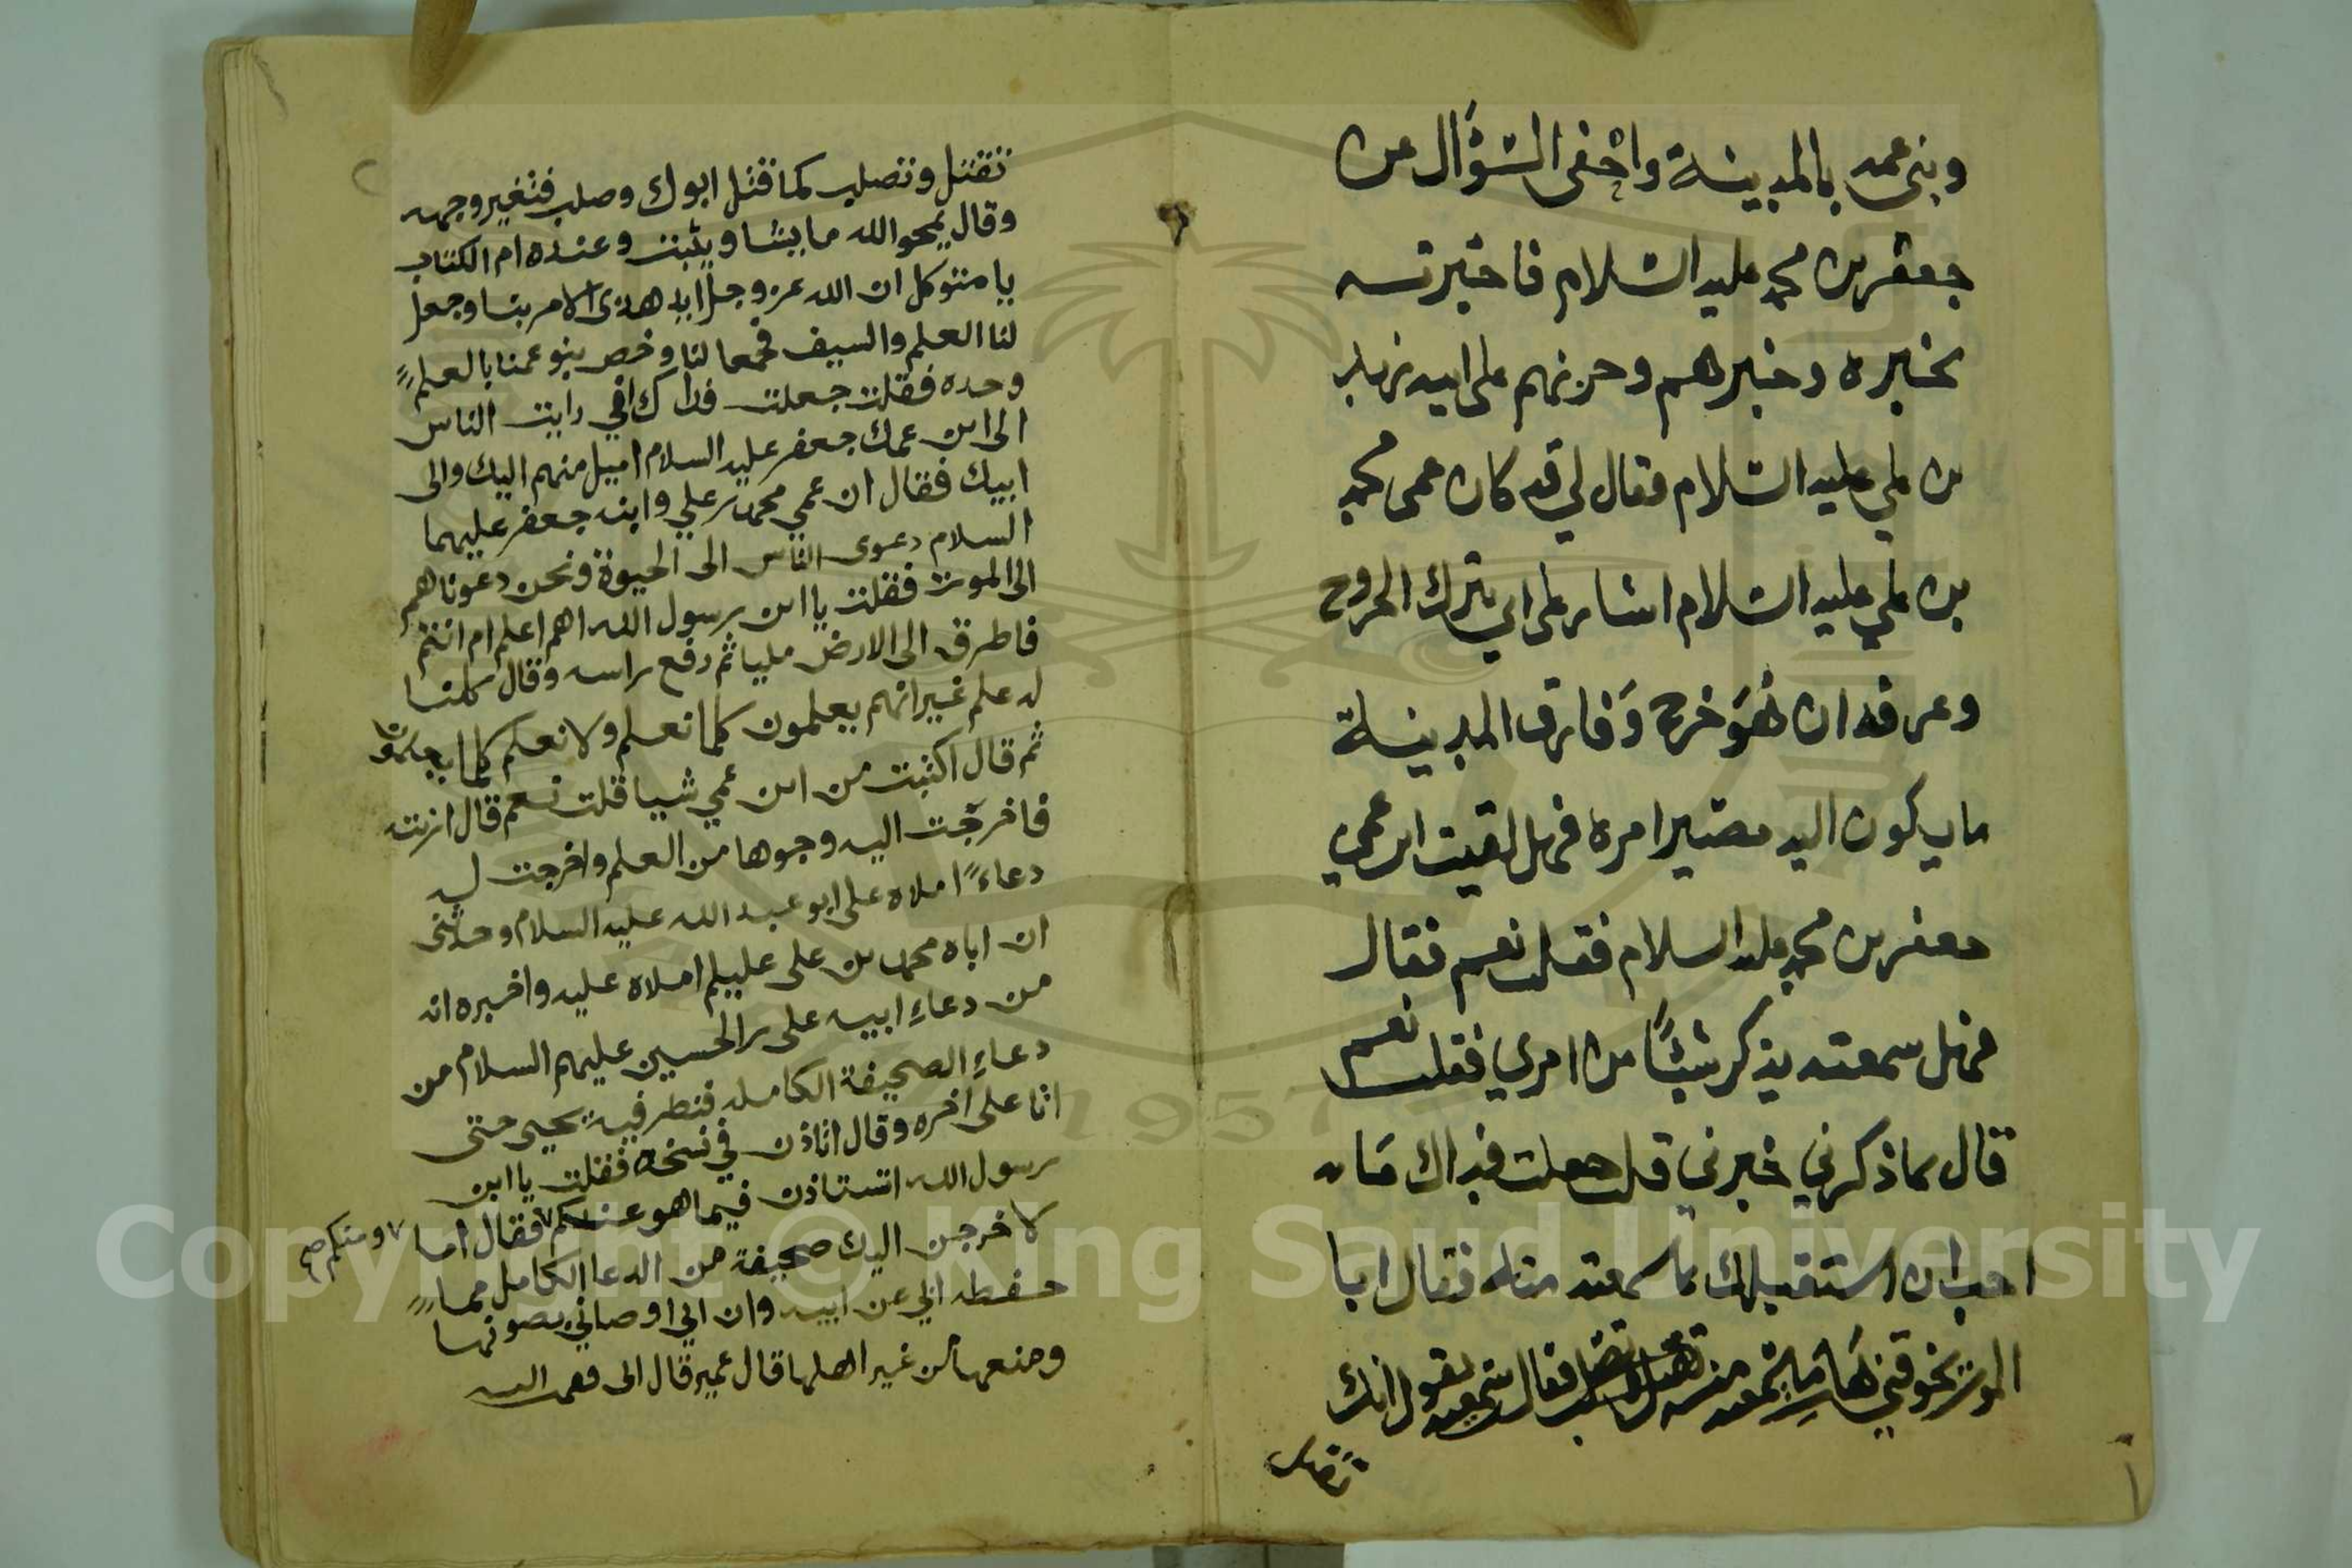 وبنى عمه بالمدينة واحفى السّؤال عن
جعفر بن محمد عليه السلام فاخبرته
بخبره وخبرهم وحزنهم على ابيه زيد
بن علي عليه السلام فقال لي قد كان عمى محمد
بن علي عليه السلام اشار على ابي بترك الخروج
وعرفه ان هُوَ خرج وَفارق المدينة
ما يكون اليه مصير امره فهل لقيت ابن عمي
جعفر بن محمد عليه السلام فقلت نعم فقال
فهل سمعته يذكر شيئًا من امري فقلت نعم
قال بماذكرني خبرني قلت جعلت فداك مَا
احب ان استقبلك بما سمعته منه فقال ابا
الموت تخوفني هَات مَا سمعته فقلت سمعته يقول انك
تقتل
تقتل وتصلب كما قتل ابوك وصلب فتغير وجهه
وقال يمحو الله ما يشا ويثبت وعنده ام الكتاب
يا متوكل ان الله عز وجل ايد هذى الامر بنا وجعل
لنا العلم والسيف فجمعا لنا وخص بنو عمنا بالعلم
وحده فقلت جعلت فداك اني رايت الناس
الى ابن عمك جعفر عليه السلام اميل منهم اليك والى
ابيك فقال ان عمي محمد بن علي وابنه جعفر عليهما
السلام دعوى الناس الى الحيوة ونحن دعوناهم
الى الموت فقلت يا ابن رسول الله اهم اعلم ام انتم
فاطرق الى الارض مليا ثم رفع راسه وقال كلنا
له علم غير انهم يعلمون كلما نعلم ولا نعلم كلما يعلمون
ثم قال اكتبت من ابن عمي شيا قلت نعم قال ارنيه
فاخرجت اليه وجوها من العلم واخرجت له
دعاءً املاه على ابو عبد الله عليه السلام وحدثني
ان اباه محمد بن على عليلم املاه عليه واخبره انه
من دعاء ابيه على بن الحسين عليهم السلام من
دعاء الصحيفة الكامله فنظر فيه يحيى حتى
اتا على اخره وقال اتاذن في نسخه فقلت يا ابن
رسول الله اتستاذن فيما هو عندكم فقال اما
ومنكم صح
لاخرجن اليك صحيفة من الدعا الكامل مما
حفظه ابي عن ابيه وان ابي اوصاني بصونها
ومنعها من غير اهلها قال عمير قال ابى فقمت اليه
Copyright © King Saud University
1957